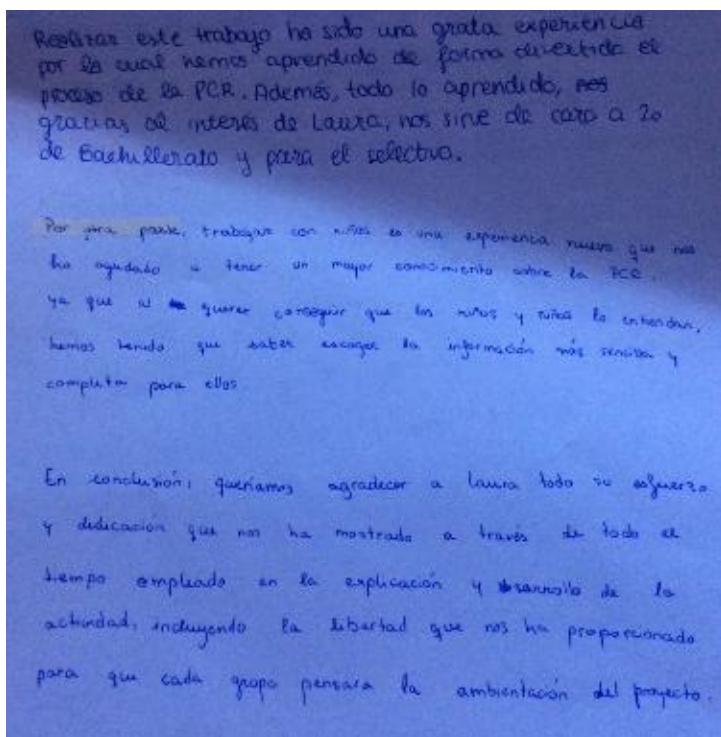 Realizar este trabajo ha sido una grata experiencia
por la cual hemos aprendido de forma divertida el
proceso de la PCR. Además, todo lo aprendido, nos
gracias al interés de Laura, nos sirve de cara a 2o
de Bachillerato y para el selectivo.
Por otra parte, trabajar con niños es una experiencia nueva que nos
ha ayudado a tener un mayor conocimiento sobre la PCR,
ya que al querer conseguir que los niños y niñas lo entiendan,
hemos tenido que saber escoger la información más sencilla y
completa para ellos
En conclusión, queríamos agradecer a Laura todo su esfuerzo
y dedicación que nos ha mostrado a través de todo el
tiempo empleado en la explicación y desarrollo de la
actividad, incluyendo la libertad que nos ha proporcionado
para que cada grupo pensara la ambientación del proyecto.